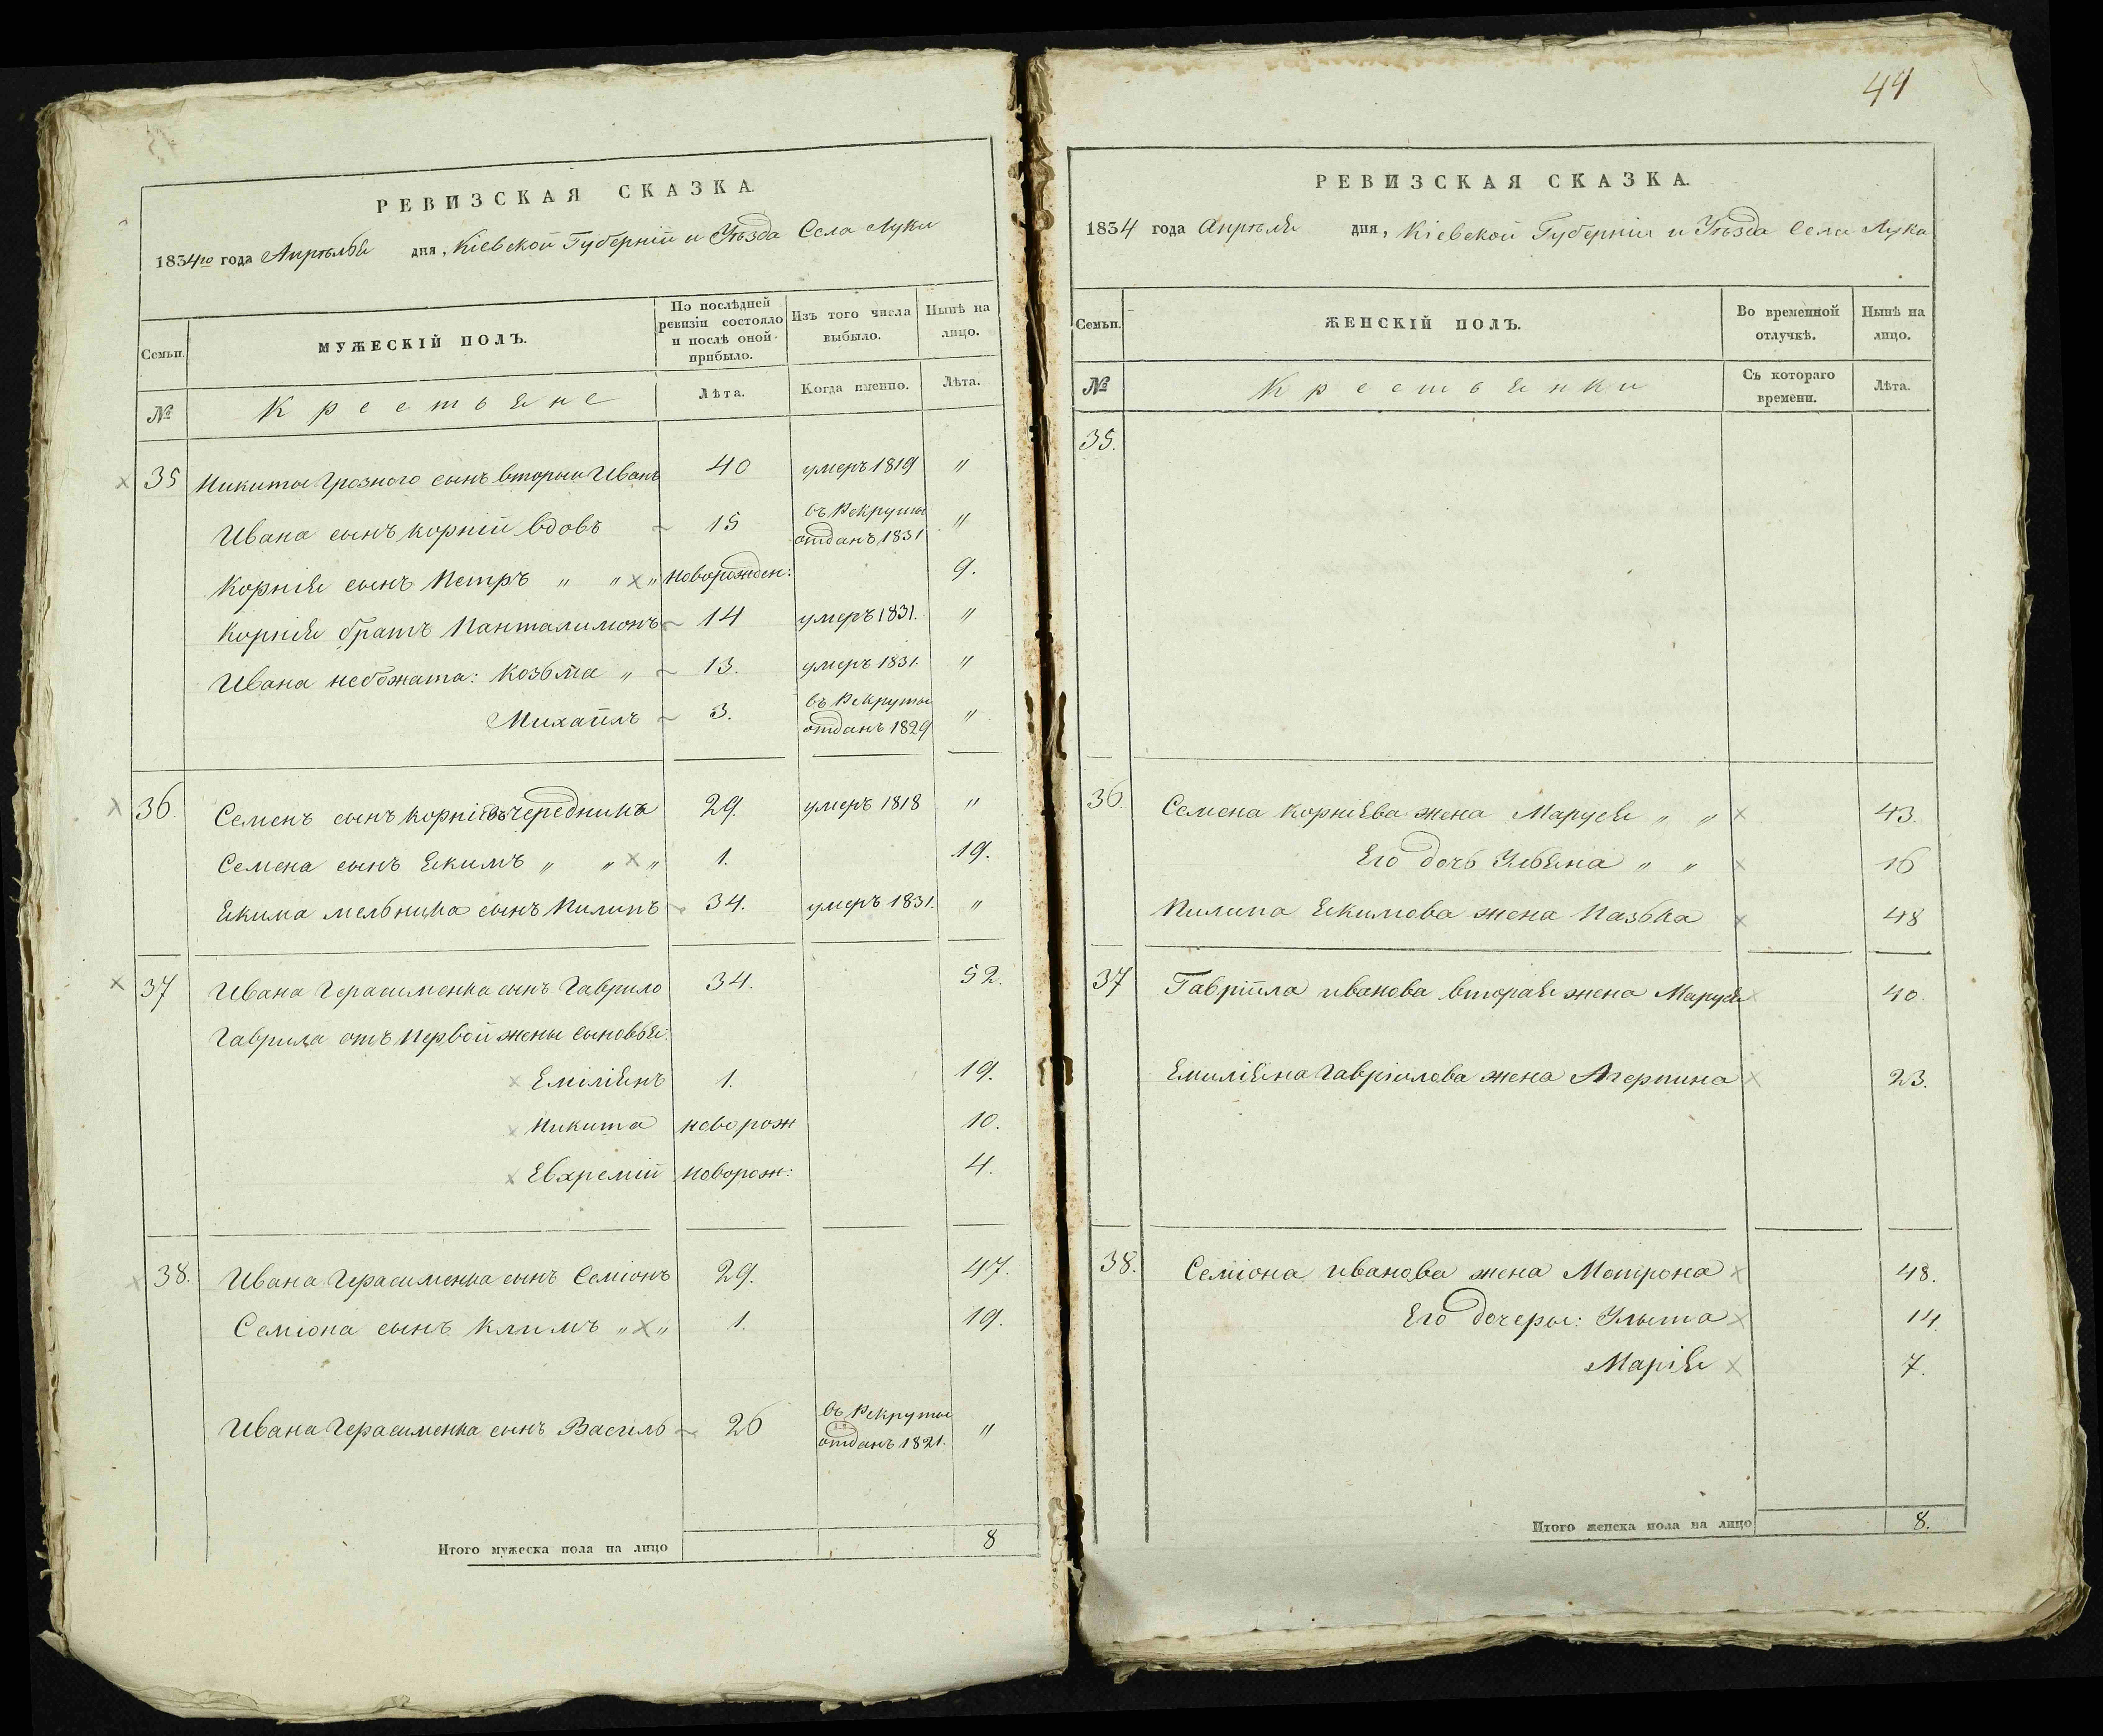 РЕВИЗСКАЯ СКАЗКА.
1834го года Апрѣля дня, Кіевской Губерніи и Уѣзда Села Луки
Семьи.
МУЖЕСКІЙ ПОЛЪ.
По послѣдней ревизіи состояло и послѣ оной прибыло.
Изъ того числа выбыло.
Нынѣ на лицо.
№
Крестьяне
Лѣта.
Когда именно.
Лѣта.
35 Никиты Грозного сынъ вторый Иванъ 40 умеръ 1819 "
Ивана сынъ корній вдовъ ~ 15 въ Рекруты отданъ 1831 "
Корнія сынъ Петръ " " х " Новорожден: 9.
Корнія братъ Панталимонъ ~ 14 умеръ 1831. "
Ивана небожата: Козьма " ~ 13. умеръ 1831. "
Михайлъ ~ 3. въ Рекруты отданъ 1829 "
36. Семенъ сынъ корніевъ чередника 29. умеръ 1818 "
Семена сынъ Якимъ " " х " 1. 19.
Якима мельника сынъ Пилипъ ~ 34. умеръ 1831. "
37 Ивана Герасименка сынъ Гаврило 34. 52.
Гаврила отъ Первой жены сыновья:
х Еміліянъ 1. 19.
х Никита новорож 10.
х Евхремій Новорож: 4.
38. Ивана Герасименка сынъ Семіонъ 29. 47.
Семіона сынъ Климъ " х " 1. 19.
Ивана Герасименка сынъ Василь ~ 26 въ Рекруты отданъ 1821. "
Итого мужеска пола на лицо 8
44
РЕВИЗСКАЯ СКАЗКА.
1834 года Апрѣля дня, Кіевской Губерніи и Уѣзда Села Луки
Семьи.
ЖЕНСКІЙ ПОЛЪ.
Во временной отлучкѣ.
Нынѣ на лицо.
№
Крестьянки
Съ котораго времени.
Лѣта.
35.
36. Семена Корніева жена Маруся " " х 43.
Его дочь Ульяна " " х 16
Пилипа Якимова жена Пазька х 48
37 Гавріила иванова вторая жена Маруся х 40.
Емиліяна Гавріилова жена Агерпина х 23.
38. Семіона иванова жена Мотрона х 48.
Его дочеры: Улыта х 14.
Марія х 7.
Итого женска пола на лицо 8.